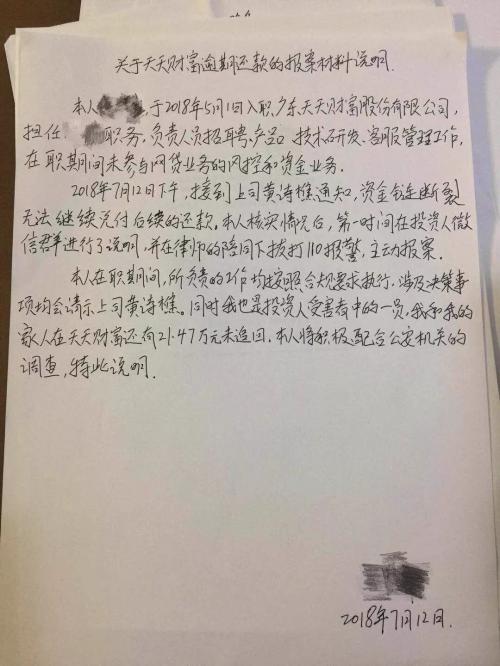 关于天天财富逾期还款的报案材料说明.
本人，于2018年5月1日入职广东天天财富股份有限公司，
担任职务，负责人员招聘、产品、技术研发、客服管理工作，
在职期间未参与网贷业务的风控和资金业务.
2018年7月12日下午，接到上司黄诗樵通知，资金链断裂
无法继续兑付后续的还款。本人核实情况后，第一时间在投资人微
信群进行了说明，并在律师的陪同下拨打110报警，主动报案.
本人在职期间，所负责的工作均按照合规要求执行，涉及决策事
项均会请示上司黄诗樵。同时我也是投资人受害者中的一员，我和我的
家人在天天财富还有21.47万元未追回，本人将积极配合公安机关的
调查，特此说明.
2018年7月12日.